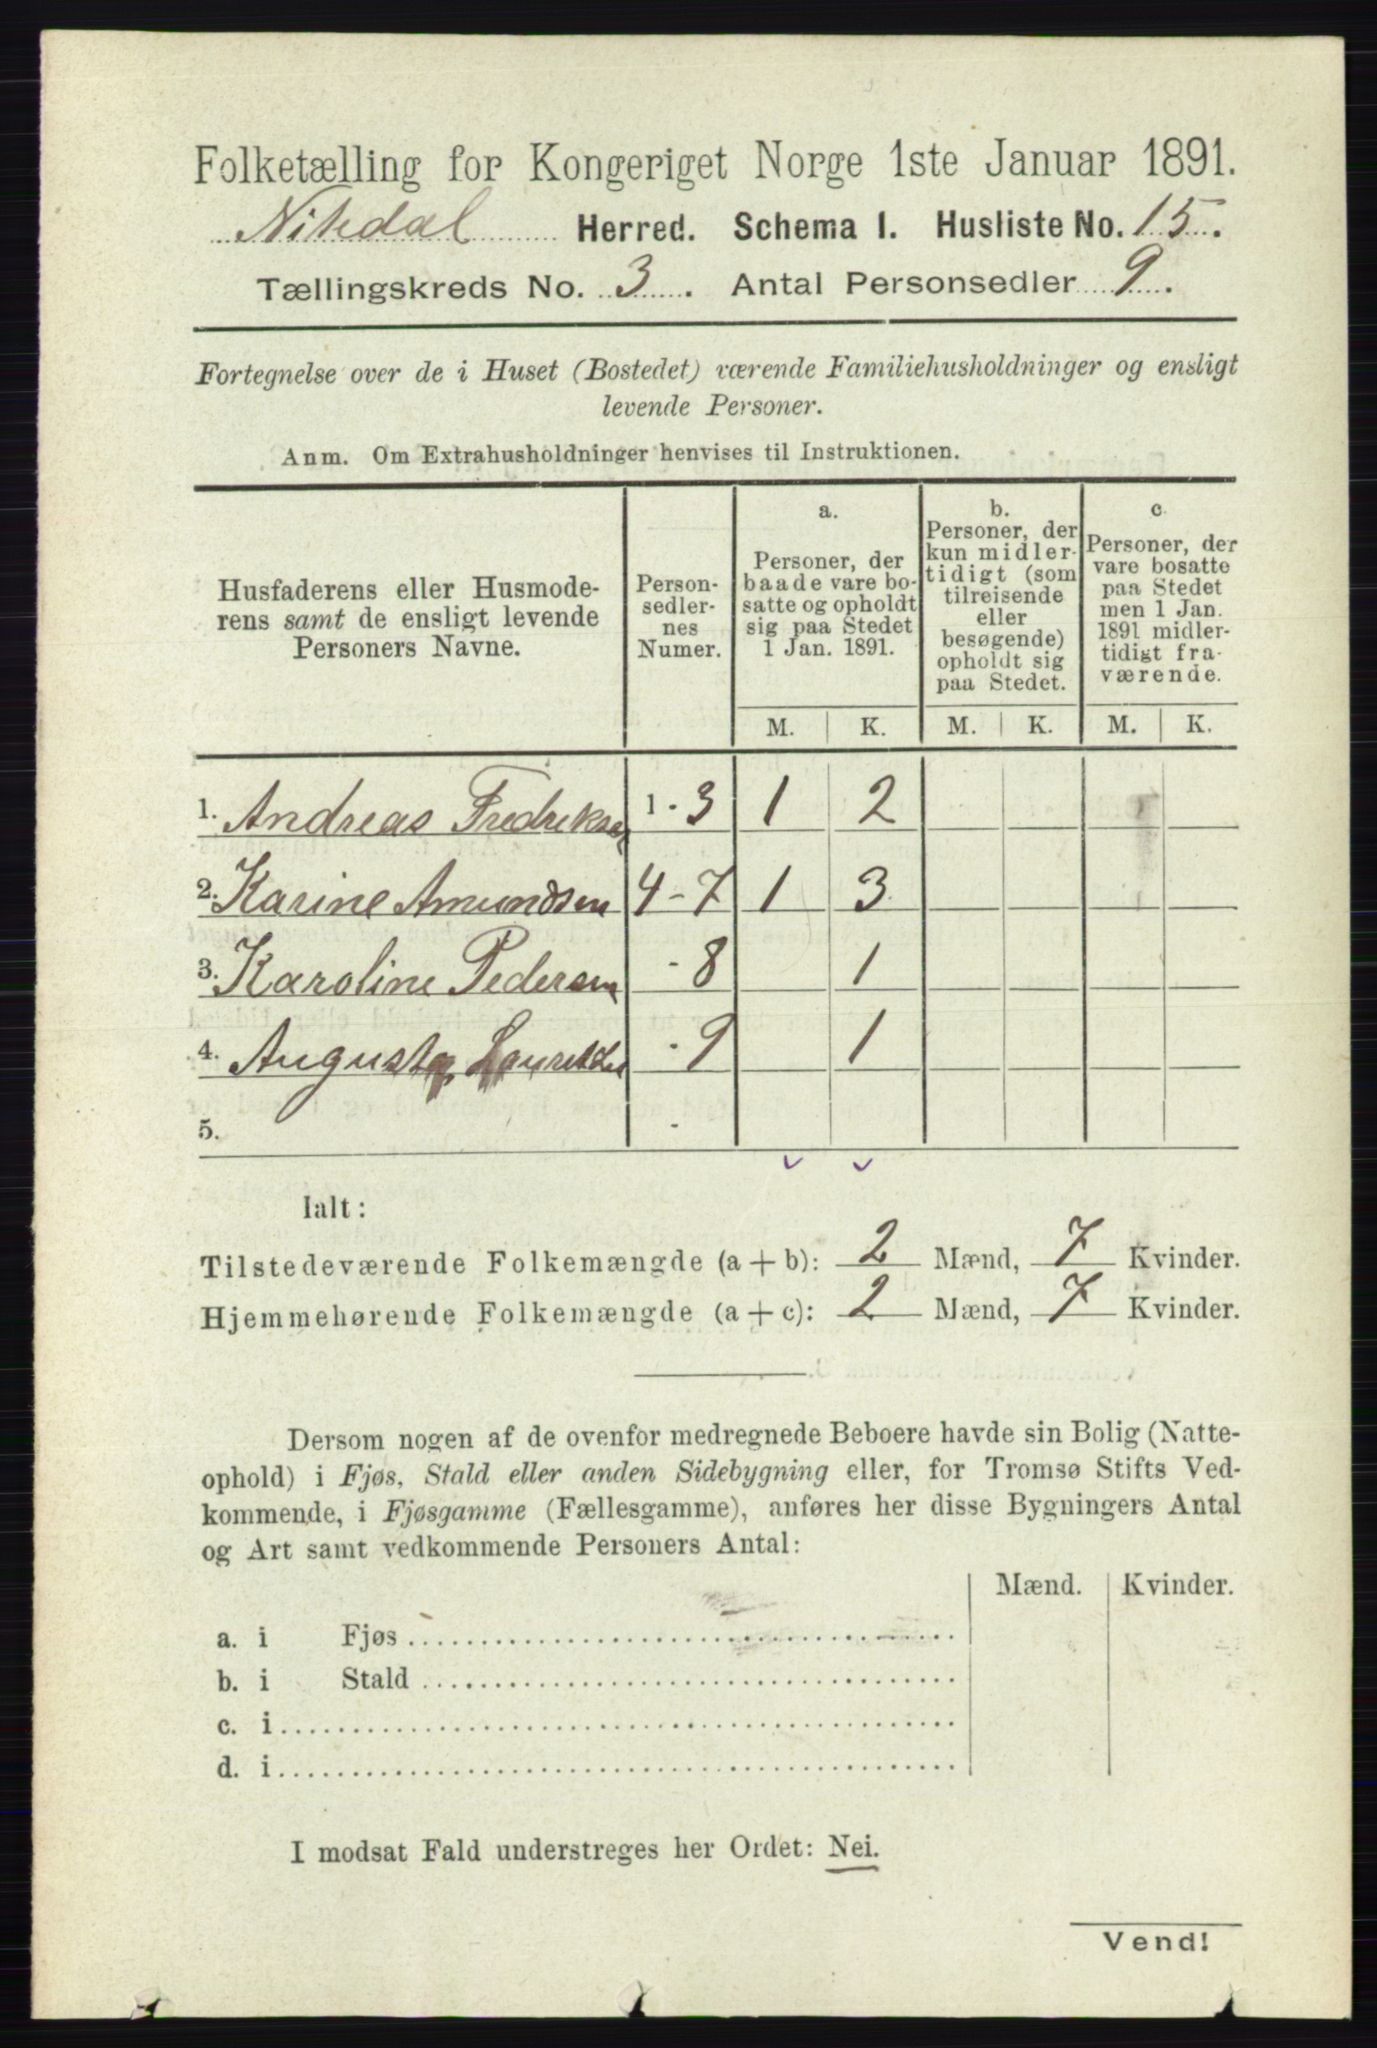 Folketælling for Kongeriget Norge 1ste Januar 1891.
Nitedal Herred. Schema I. Husliste No. 15.
Tællingskreds No. 3. Antal Personsedler 9.
Fortegnelse over de i Huset (Bostedet) værende Familiehusholdninger og ensligt
levende Personer.
Anm. Om Extrahusholdninger henvises til Instruktionen.
Husfaderens eller Husmode-
rens samt de ensligt levende
Personers Navne.
Person-
sedler-
nes
Numer.
a.
Personer, der
baade vare bo-
satte og opholdt
sig paa Stedet
1 Jan. 1891.
b.
Personer, der
kun midler-
tidigt (som
tilreisende
eller
besøgende)
opholdt sig
paa Stedet.
c.
Personer, der
vare bosatte
paa Stedet
men 1 Jan.
1891 midler-
tidigt fra-
værende.
M. K. M. K. M. K.
1. Andreas Fredriksen 1 - 3 1 2
2. Karine Amundsen 4 - 7 1 3
3. Karoline Pedersen - 8 1
4. Augusta - 9 1
5. -
Ialt:
Tilstedeværende Folkemængde (a + b): 2 Mænd, 7 Kvinder.
Hjemmehørende Folkemængde (a + c): 2 Mænd, 7 Kvinder.
Dersom nogen af de ovenfor medregnede Beboere havde sin Bolig (Natte-
ophold) i Fjøs, Stald eller anden Sidebygning eller, for Tromsø Stifts Ved-
kommende, i Fjøsgamme (Fællesgamme), anføres her disse Bygningers Antal
og Art samt vedkommende Personers Antal:
Mænd. Kvinder.
a. i Fjøs
b. i Stald
c. i
d. i
I modsat Fald understreges her Ordet: Nei.
Vend!